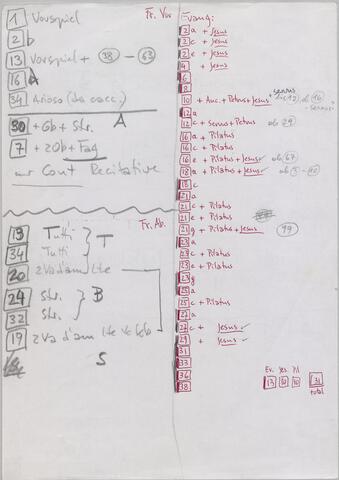 Fr. Vor
1 Vorspiel
2 b
13 Vorspiel + 38 - 63
16 A
34 Arioso (da cacc.)
A
30 + Gb + Str.
7 + 2 Ob + Fag
nur Cont Recitative
Fr. Ab.
13 Tutti
34 Tutti
T
20 2 Va d'am Lte
24 Str.
32 Str.
B
19 2 Va d'am Lte Vc Gb
S
Evang:
2 a + Jesus
2 c + Jesus
2 e + Jesus
4 + Jesus
6
8
10 + Anc. + Petrus + Jesus
12 a
12 c + Servus + Petrus ab 29
16 a + Pilatus
16 c + Pilatus
16 e + Pilatus + Jesus ab 67
18 a + Pilatus + Jesus
18 c
21 a
21 c + Pilatus
21 e + Pilatus
21 g + Pilatus + Jesus 99
23 a
23 c + Pilatus
23 e + Pilatus
23 g
25 a
25 c + Pilatus
27 a
27 c + Jesus
29 + Jesus
31
33
36
38
Ev. Jes. Pil
13 10 10 31
total